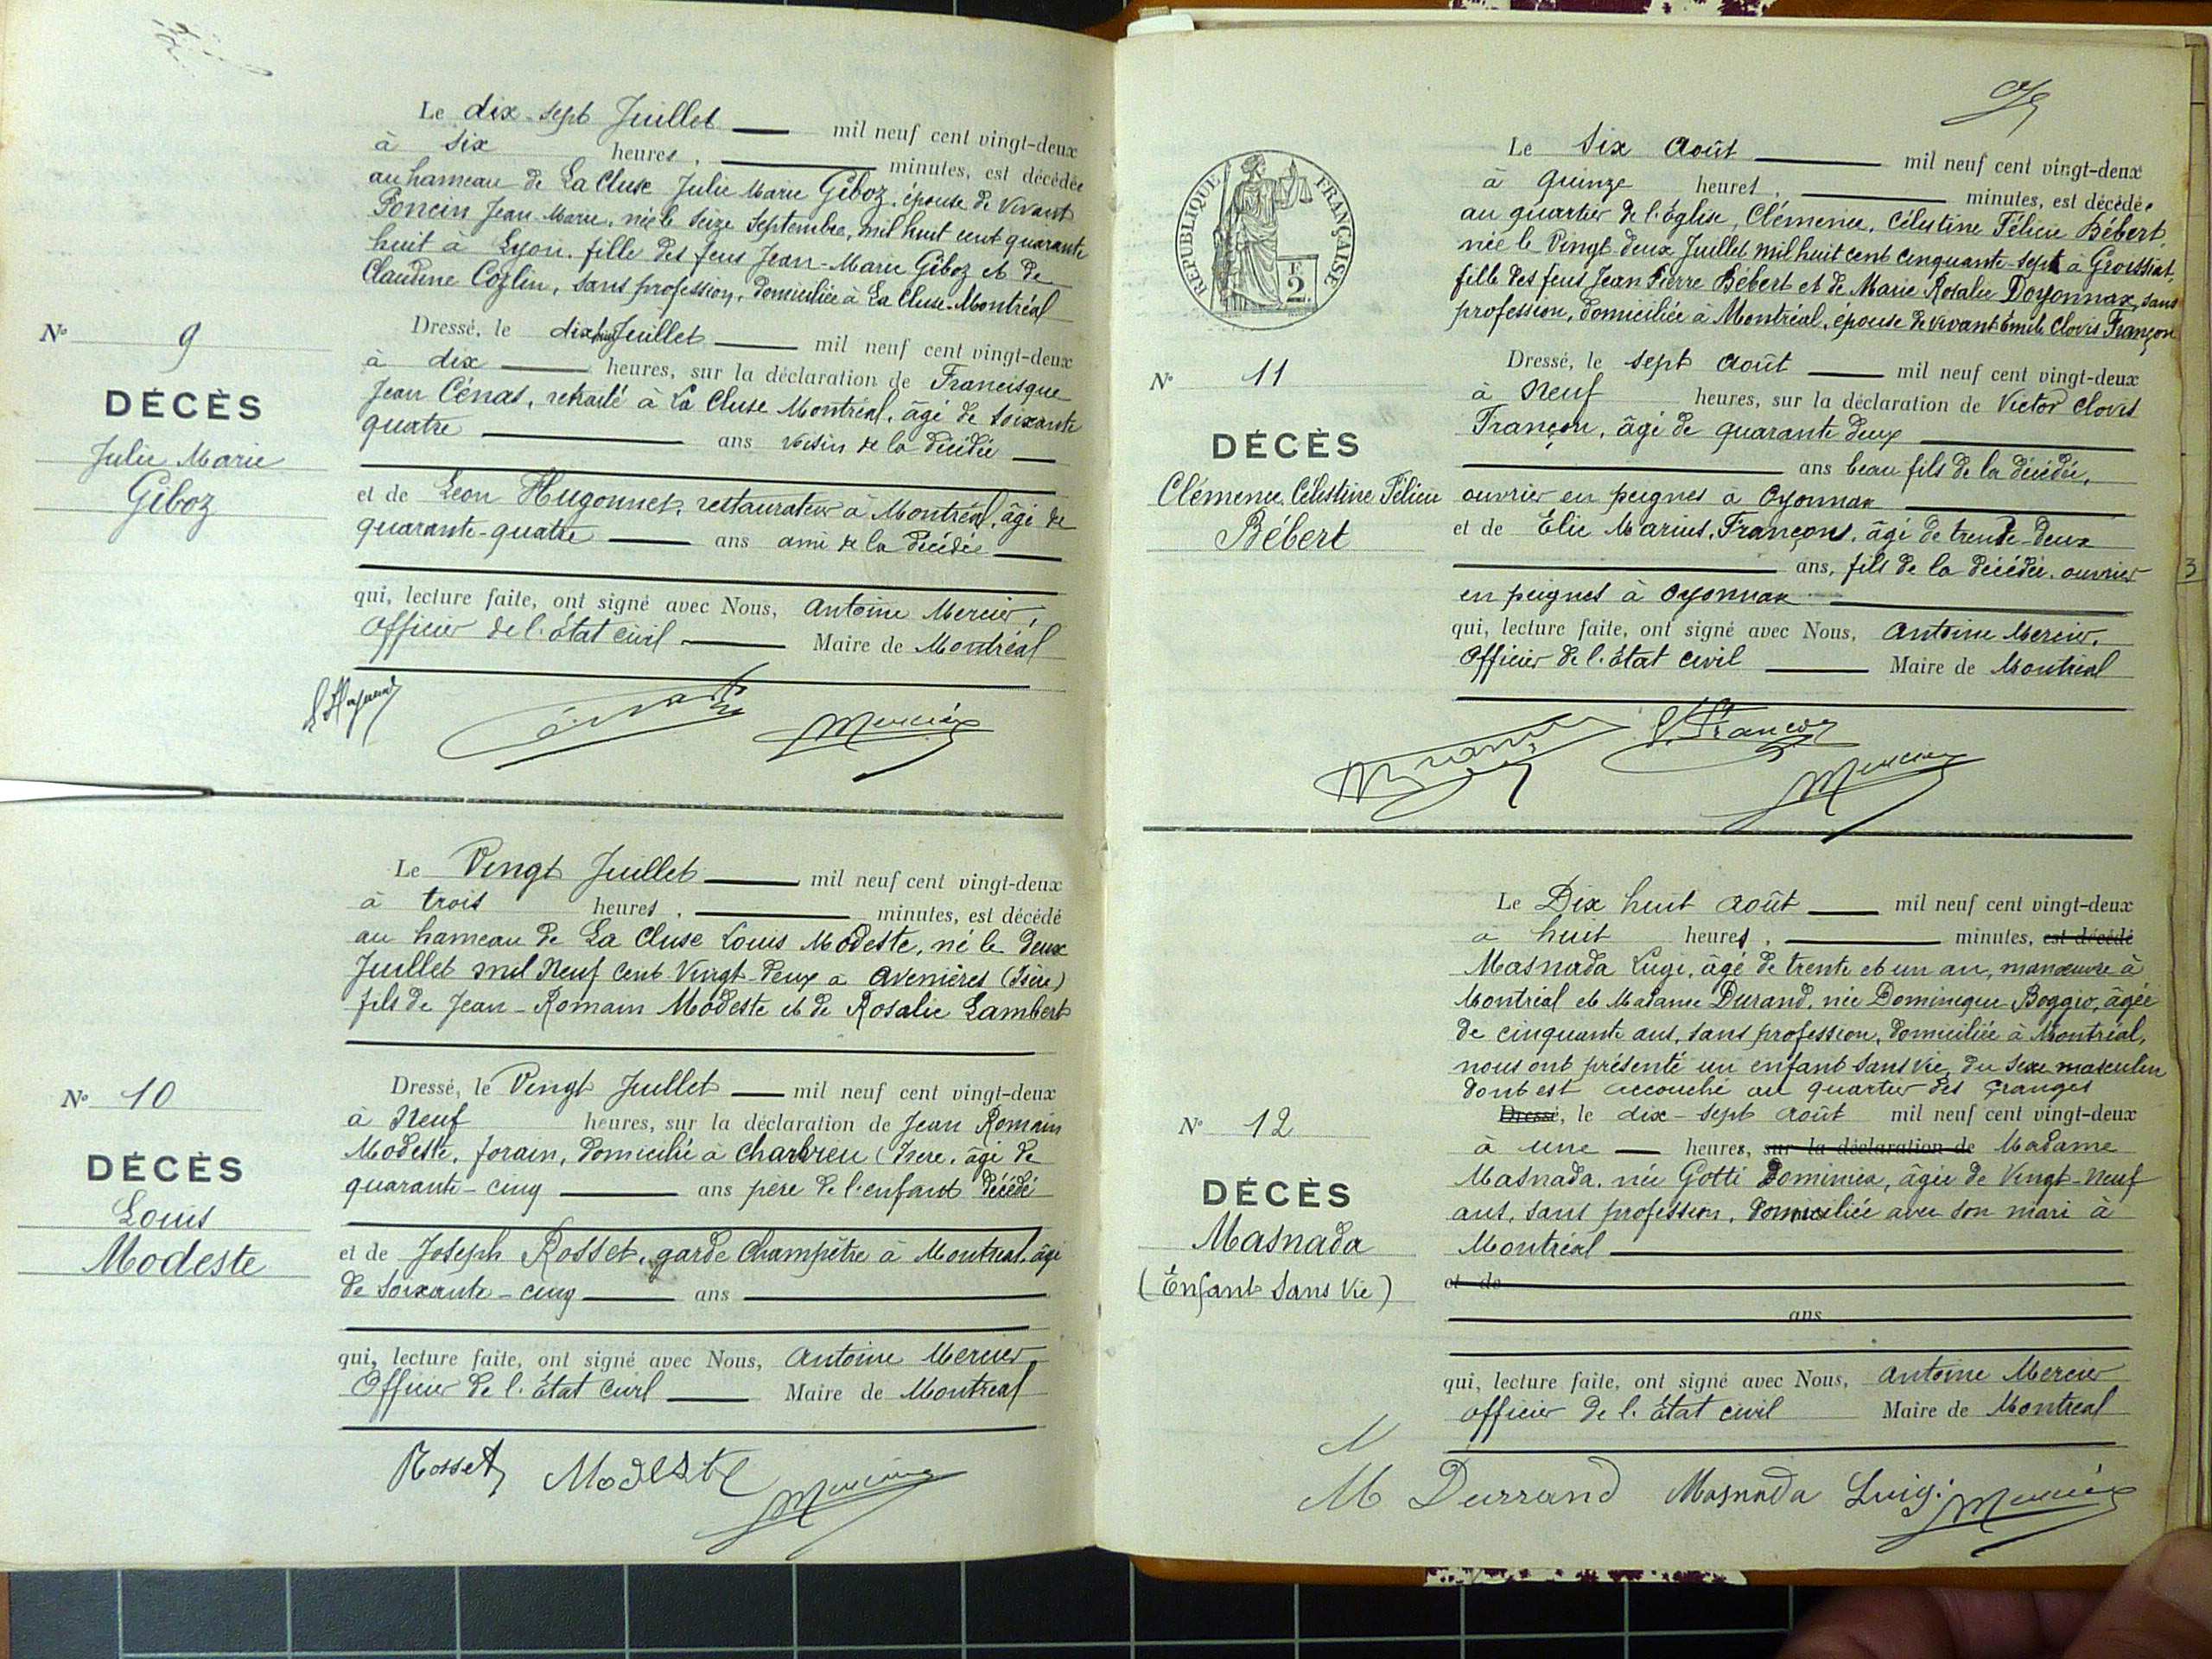 Le dix-sept Juillet mil neuf cent vingt-deux
à six heures, minutes, est décédée
au hameau de La Cluse Julie Marie Giboz, épouse de vivant
Poncin Jean Marie, née le seize Septembre, mil huit cent quarante
huit à Lyon, fille des feus Jean-Marie Giboz et de
Claudine Cozlin, sans profession, domiciliée à La Cluse-Montréal
Nº 9
DÉCÈS
Julie Marie
Giboz
Dressé, le dix huit Juillet mil neuf cent vingt-deux
à dix heures, sur la déclaration de Francisque
Jean Cénas, retraité à La Cluse Montréal, âgé de soixante
quatre ans voisin de la décédée
et de Léon Hugonnet, restaurateur à Montréal, âgé de
quarante-quatre ans ami de la décédée
qui, lecture faite, ont signé avec Nous, Antoine Mercier,
Officier de l'État civil Maire de Montréal
Mercier
Le Vingt Juillet mil neuf cent vingt-deux
à trois heures, minutes, est décédé
au hameau de La Cluse Louis Modeste, né le deux
Juillet mil Neuf Cent Vingt-deux à Avenières (Isère)
fils de Jean-Romain Modeste et de Rosalie Lambert
Nº 10
DÉCÈS
Louis
Modeste
Dressé, le Vingt Juillet mil neuf cent vingt-deux
à Neuf heures, sur la déclaration de Jean Romain
Modeste, forain, domicilié à Charvieu (Isère, âgé de
quarante-cinq ans père de l'enfant décédé
et de Joseph Rosset, garde Champêtre à Montréal, âgé
de soixante-cinq ans
qui, lecture faite, ont signé avec Nous, Antoine Mercier
Officier de l'État civil Maire de Montréal
Rosset Modeste Mercier
RÉPUBLIQUE FRANÇAISE
2 F.
Le Six Août mil neuf cent vingt-deux
à Quinze heures, minutes, est décédée
au quartier de l'Église, Clémence, Célestine Félicie Bébert,
née le Vingt deux Juillet mil huit cent cinquante-sept à Groissiat,
fille des feus Jean Pierre Bébert et de Marie Rosalie Doyonnax, sans
profession, domiciliée à Montréal, épouse de vivant Émile Clovis Françon
Nº 11
DÉCÈS
Clémence, Célestine Félicie
Bébert
Dressé, le sept Août mil neuf cent vingt-deux
à Neuf heures, sur la déclaration de Victor Clovis
Françon, âgé de quarante deux
ans beau fils de la décédée,
ouvrier en peignes à Oyonnax
et de Élie Marius Françon, âgé de trente-deux
ans, fils de la décédée, ouvrier
en peignes à Oyonnax
qui, lecture faite, ont signé avec Nous, Antoine Mercier,
Officier de l'État civil Maire de Montréal
Françon
Mercier
3
Le Dix huit Août mil neuf cent vingt-deux
à huit heures, minutes, est décédé
Masnada Luigi, âgé de trente et un an, manœuvre à
Montréal et Madame Durand, née Dominique Boggio, âgée
de cinquante ans, sans profession, domiciliée à Montréal,
nous ont présenté un enfant sans vie, du sexe masculin
dont est accouchée au quartier des Granges
Nº 12
DÉCÈS
Masnada
(Enfant sans Vie)
Dressé, le dix-sept Août mil neuf cent vingt-deux
à une heures, sur la déclaration de Madame
Masnada, née Gotti Dominica, âgée de Vingt-Neuf
ans, sans profession, domiciliée avec son mari à
Montréal
et de
ans
qui, lecture faite, ont signé avec Nous, Antoine Mercier
Officier de l'État civil Maire de Montréal
M Durrand Masnada Luigi Mercier